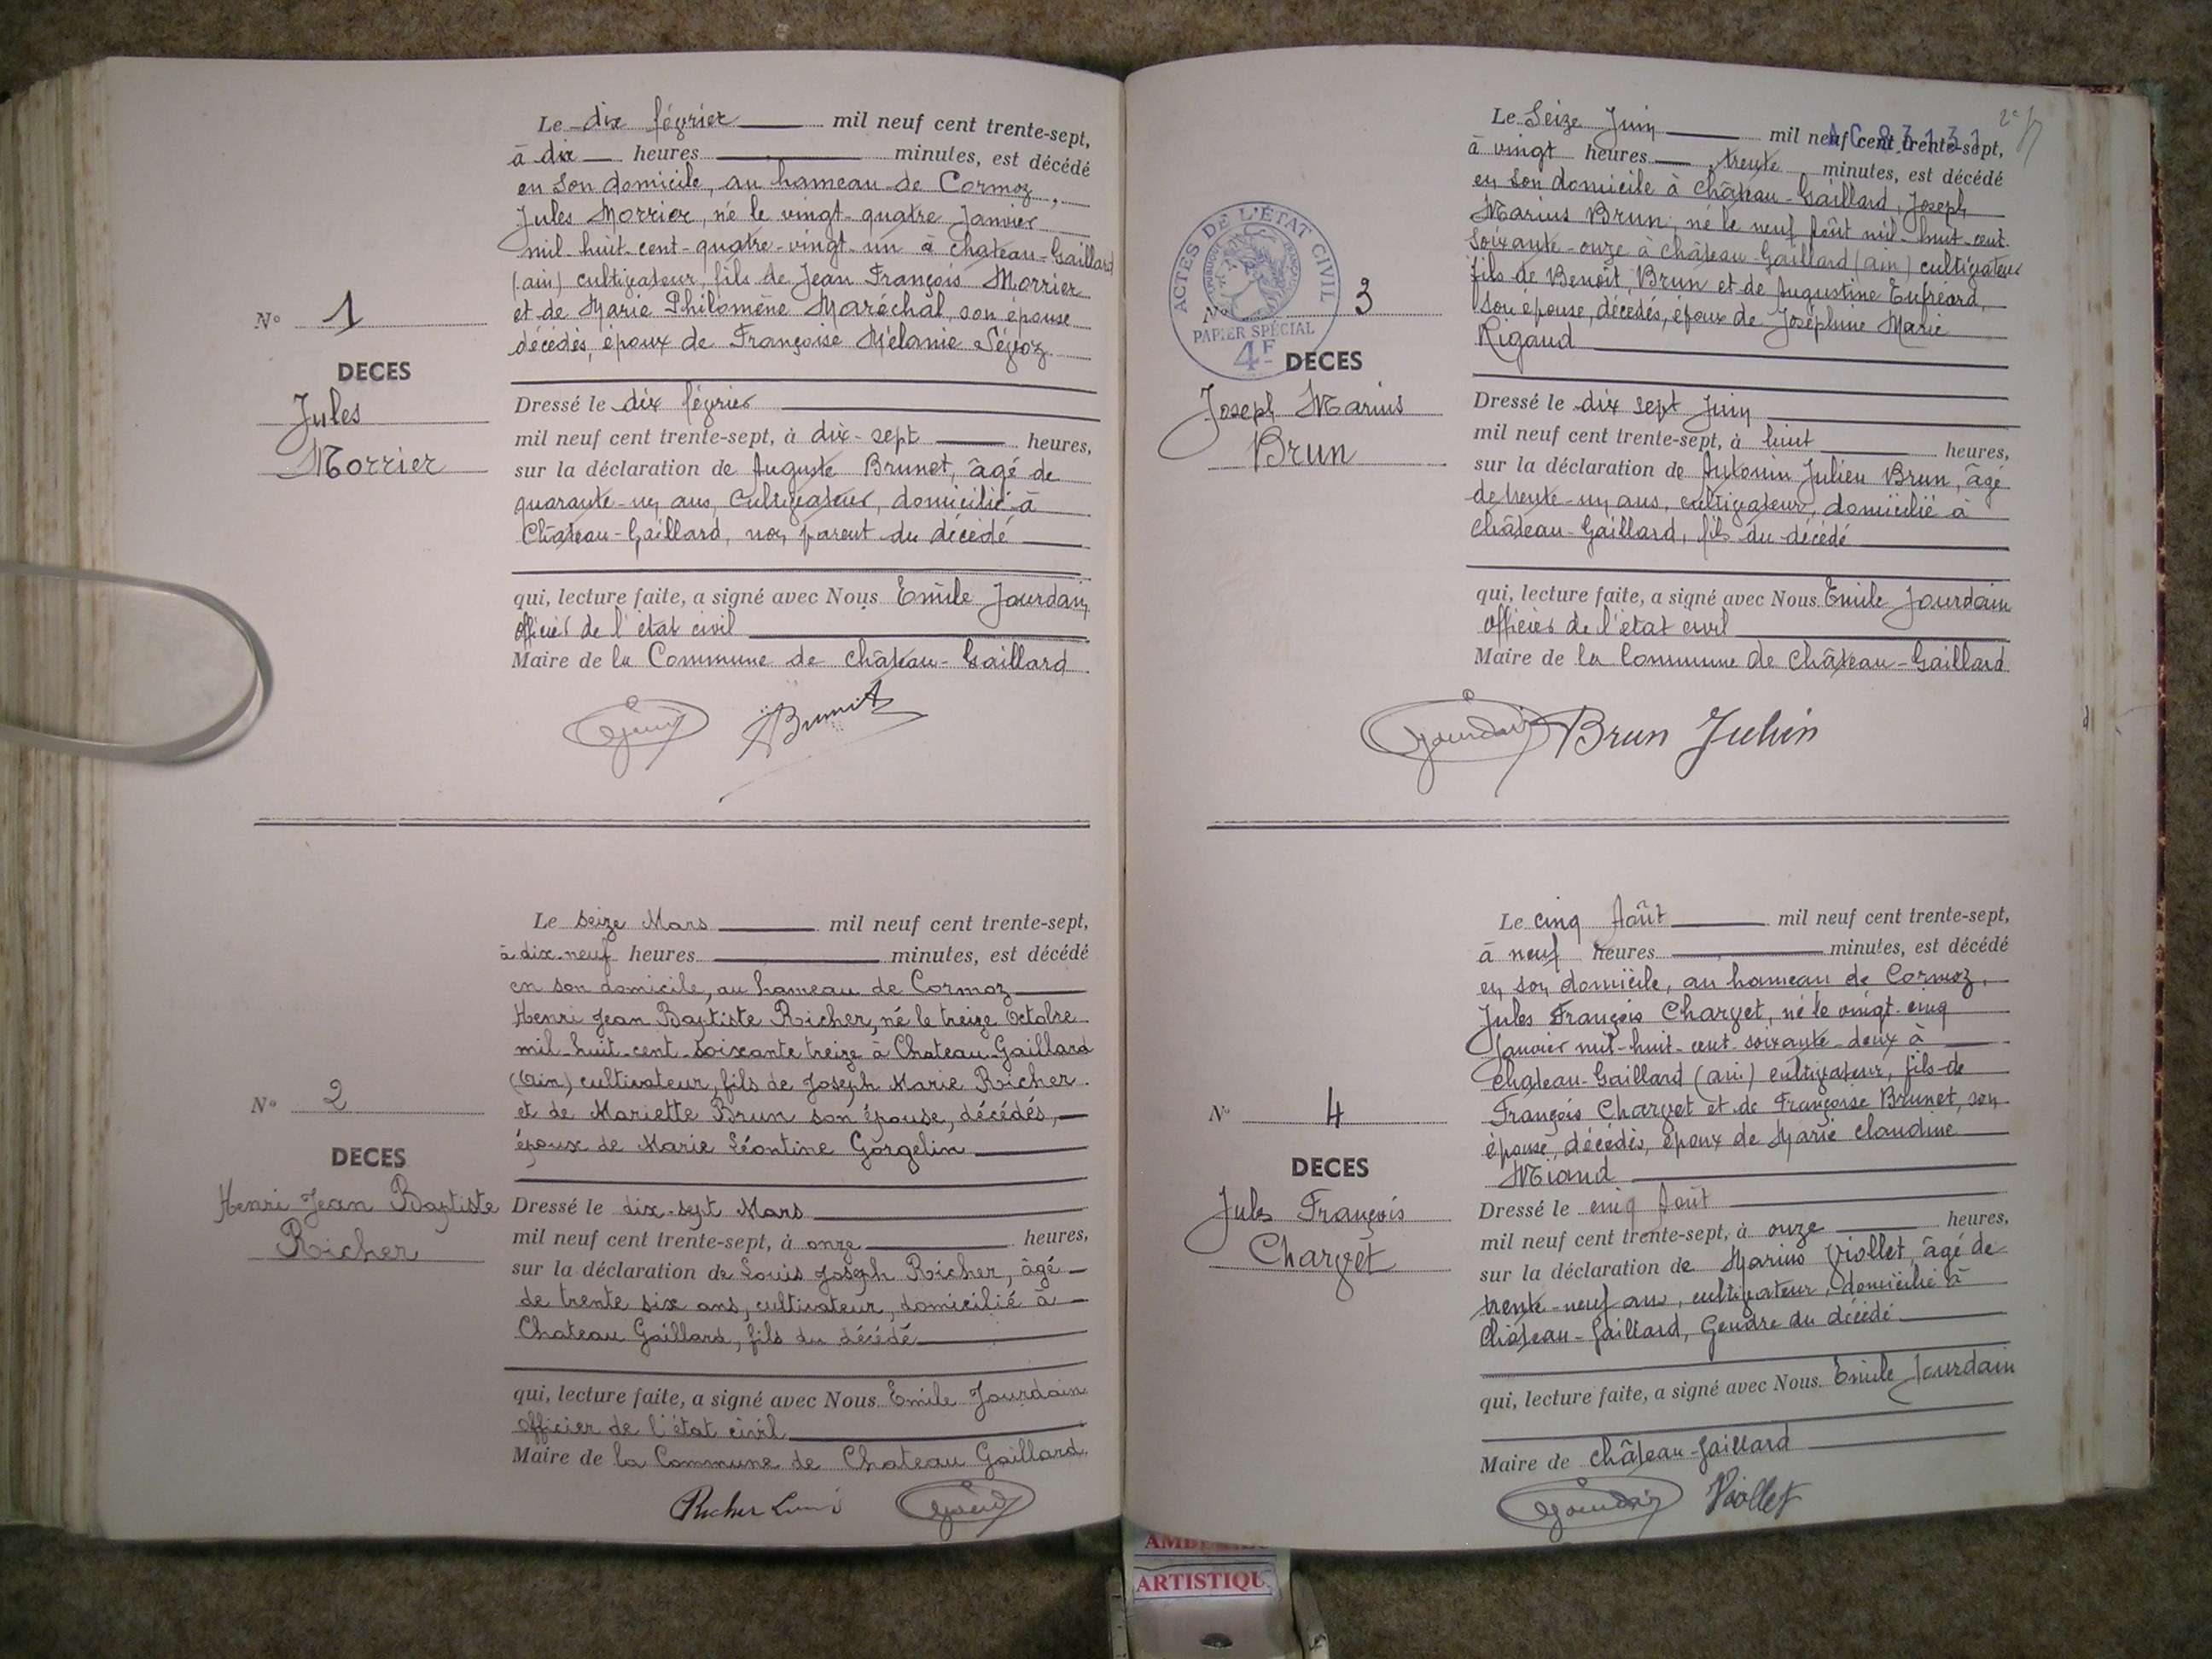 Le dix février mil neuf cent trente-sept,
à dix heures minutes, est décédé
en son domicile, au hameau de Cormoz,
Jules Morrier, né le vingt-quatre Janvier
mil-huit-cent-quatre-vingt-un à chateau-Gaillard
(ain) cultivateur, fils de Jean François Morrier
et de Marie Philomène Maréchal, son épouse
décédés, époux de Françoise Mélanie
N° 1
DECES
Jules
Morrier
Dressé le dix février
mil neuf cent trente-sept, à dix-sept heures,
sur la déclaration de Auguste Brunet, âgé de
quarante-un ans, cultivateur, domicilié à
Château-Gaillard, non parent du décédé
qui, lecture faite, a signé avec Nous Emile Jourdain
officier de l'état civil
Maire de la Commune de château-Gaillard
Brunet
Le seize Mars mil neuf cent trente-sept,
à dix-neuf heures minutes, est décédé
en son domicile, au hameau de Cormoz
Henri Jean Baptiste Richer, né le treize Octobre
mil-huit-cent-soixante treize à Chateau-Gaillard
(Ain) cultivateur, fils de Joseph Marie Richer
et de Mariette Brun son épouse, décédés,
époux de Marie Léontine Gorgelin
N° 2
DECES
Henri Jean Baptiste
Richer
Dressé le dix-sept Mars
mil neuf cent trente-sept, à onze heures,
sur la déclaration de Louis Joseph Richer, âgé
de trente six ans, cultivateur, domicilié à
Chateau Gaillard, fils du décédé
qui, lecture faite, a signé avec Nous Emile Jourdain
officier de l'état civil
Maire de la Commune de Chateau Gaillard
Richer Louis
Le Seize Juin mil neuf cent trente-sept,
à vingt heures trente minutes, est décédé
en son domicile à château-Gaillard, Joseph
Marius Brun, né le neuf Août mil-huit-cent
soixante-onze à château-Gaillard (ain) cultivateur
fils de Benoit Brun et de Augustine Eufréard,
son épouse, décédés, époux de Joséphine Marie
Rigaud
ACTES DE L'ÉTAT CIVIL
RÉPUBLIQUE FRANÇAISE
PAPIER SPÉCIAL
4F
N° 3
DECES
Joseph Marius
Brun
Dressé le dix sept Juin
mil neuf cent trente-sept, à huit heures,
sur la déclaration de Antonin Julien Brun, âgé
de trente-un ans, cultivateur, domicilié à
château-Gaillard, fils du décédé
qui, lecture faite, a signé avec Nous Emile Jourdain
officier de l'état civil
Maire de la Commune de Château-Gaillard
Jourdain Brun Julien
Le cinq Août mil neuf cent trente-sept,
à neuf heures minutes, est décédé
en son domicile, au hameau de Cormoz,
Jules François Charvet, né le vingt-cinq
Janvier mil-huit-cent soixante-deux à
château-Gaillard (ain) cultivateur, fils de
François Charvet et de Françoise Brunet, son
épouse, décédés, époux de Marie claudine
Miand
N° 4
DECES
Jules François
Charvet
Dressé le cinq Août
mil neuf cent trente-sept, à onze heures,
sur la déclaration de Marius Viollet, âgé de
trente-neuf ans, cultivateur, domicilié à
Château-Gaillard, Gendre du décédé
qui, lecture faite, a signé avec Nous Emile Jourdain
Maire de château-Gaillard
Jourdain Viollet
ARTISTIQU